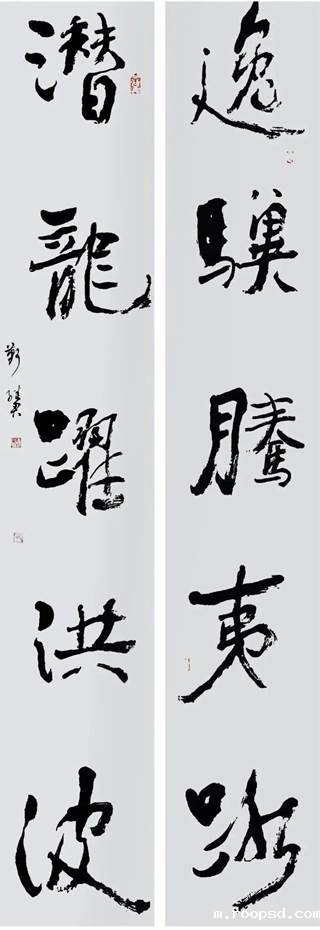 逸驥騰夷路
潛龍躍洪波
m.roopsd.com